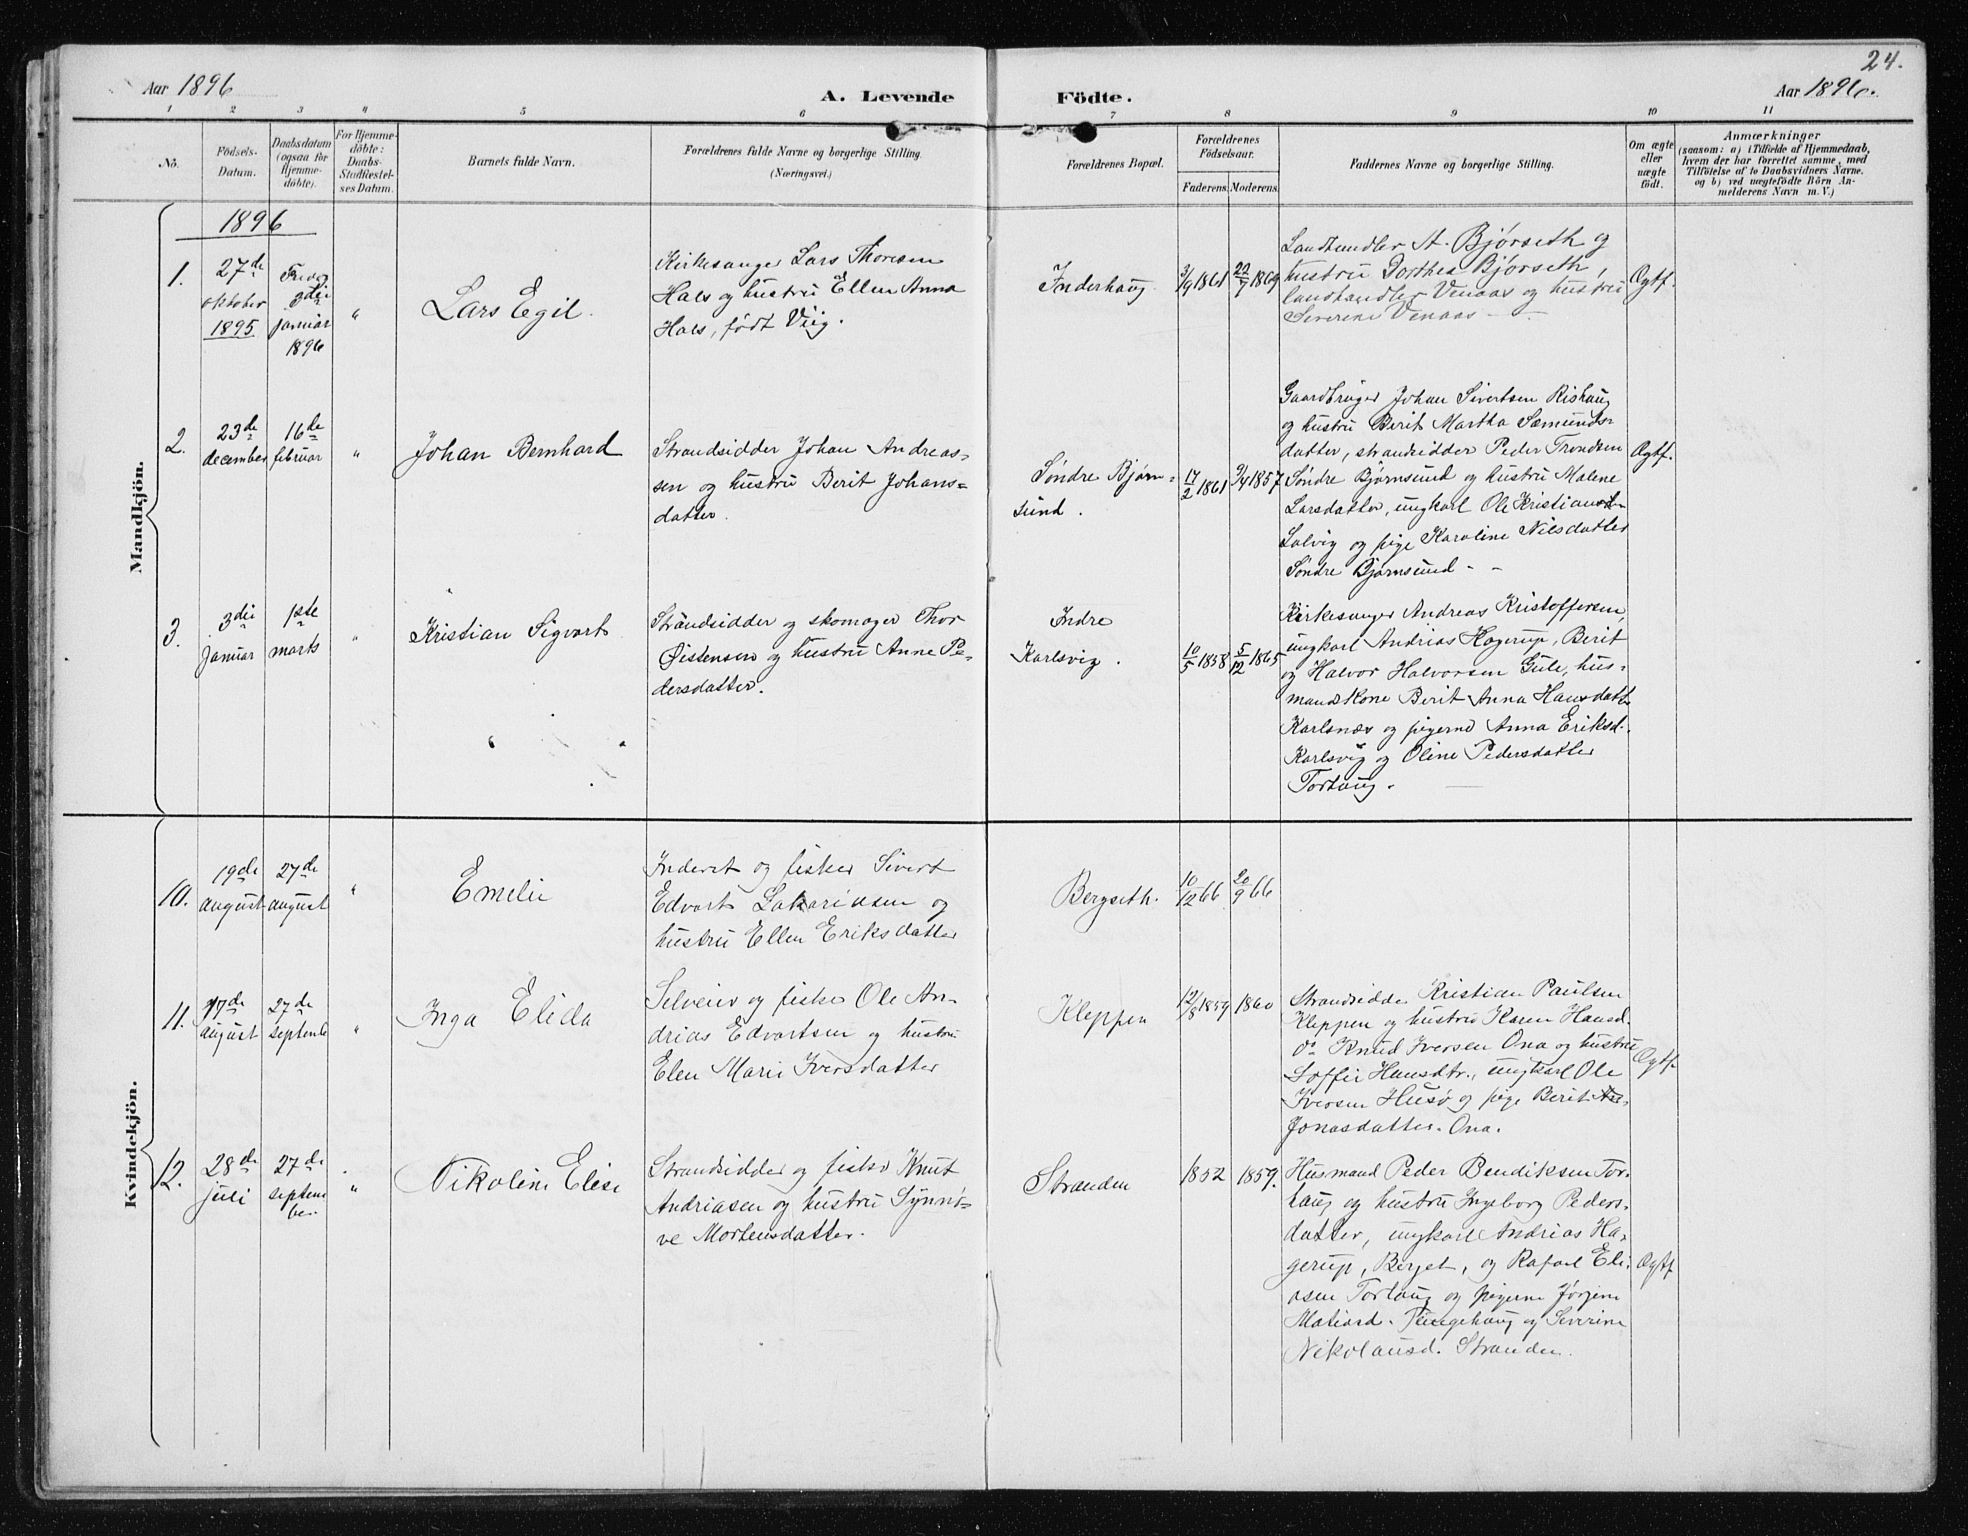 24.
Aar 1896
A. Levende Födte.
Aar 1896.
1 2 3 4 5 6 7 8 9 10 11
No.
Födsels-
Datum.
Daabsdatum
(ogsaa for
Hjemme-
döbte).
For Hjemme-
döbte:
Daabs-
Stadfæstel-
ses Datum.
Barnets fulde Navn.
Forældrenes fulde Navne og borgerlige Stilling.
(Næringsvei.)
Forældrenes Bopæl.
Forældrenes
Födselsaar.
Faderens. Moderens.
Faddernes Navne og borgerlige Stilling.
Om ægte
eller
uægte
födt.
Anmærkninger
(saasom: a) i Tilfælde af Hjemmedaab,
hvem der har forrettet samme, med
Tilföielse af to Daabsvidners Navne.
og b) ved uægtefödte Börn An-
melderens Navn m. V.)
Mandkjön.
1896
1.
27de
oktober
1895.
3die
januar
1896
"
Lars Egil.
Kirkesanger Lars Thoresen
Hals og hustru Ellen Anna
Hals, født Viig.
Inderhaug.
3/9 1861
22/7 1869
Landhandler A. Bjørseth og
hustru Dorthea Bjørseth,
landhandler Venaas og hustru
Severine Venaas
Ægtf.
2.
23de
december
16de
februar
"
Johan Bernhard
Strandsidder Johan Andreas-
sen og hustru Berit Johans-
datter.
Søndre Bjørn-
sund.
17/2 1861
9/4 1857
Gaardbruger Johan Sivertsen Rishaug
og hustru Berit Martha Sæmunds-
datter, strandsidder Peder Trondsen
Søndre Bjørnsund og hustru Malene
Larsdatter, ungkarl Ole Kristiansen
Lalvig og pige Karoline Nilsdatter
Søndre Bjørnsund - -
Ægtf.
3.
3die
januar
1ste
marts
"
Kristian Sigvart
Strandsidder og skomager Thor
Øistensen og hustru Anne Pe-
dersdatter.
Indre
Karlsvig.
10/5 1858
5/12 1865
Kirkesanger Andreas Kristoffersen,
ungkarl Andrias Hagerup, Berit
og Halvor Halvorsen Gule, hus-
mandskone Berit Anna Hansdatter
Karlsnæs og pigerne Anna Eriksd.
Karlsvig og Oline Pedersdatter
Torhaug.
Kvindekjön.
10.
19de
august
27de
august
"
Emelie
Inderst og fisker Sivert
Edvart Sakariasen og
hustru Ellen Eriksdatter
Bergseth.
10/12 66
20/9 66
11.
17de
august
27de
septembe
"
Inga Elida
Selveier og fisker Ole An-
drias Edvartsen og hustru
Elen Marie Iversdatter
Kleppen
12/8 1859
1860
Strandsidder Kristian Paulsen
Kleppen og hustru Karen Hansd.
do Knud Iversen Ona og hustru
Soffie Hansdtr., ungkarl Ole
Iversen Husø og pige Berit
Jonasdatter. Ona.
Ægtf.
12.
28de
juli
27de
septem
ber.
"
Nikoline Elise
Strandsidder og fisker Knut
Andriasen og hustru Synnø-
ve Mortensdatter.
Stranden
1852
1859.
Husmand Peder Bendiksen Tor-
haug og hustru Ingeborg Peders-
datter, ungkarl Andrias Ha-
gerup, Berset, og Rafael Eli-
asen Torhaug og pigerne Jørgine
Matiasd. Pungehaug og Severine
Nikolausd. Stranden.
Ægtf